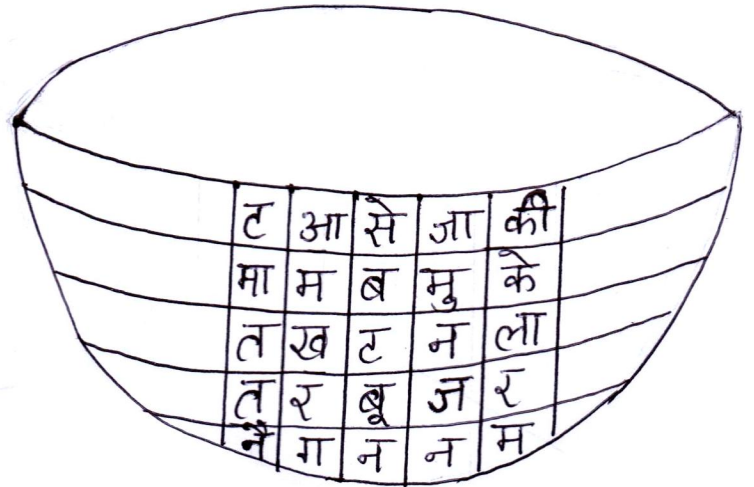 ट आ से जा की
मा म ब मु के
त ख ट न ला
त र बू ज र
नै ग न न म